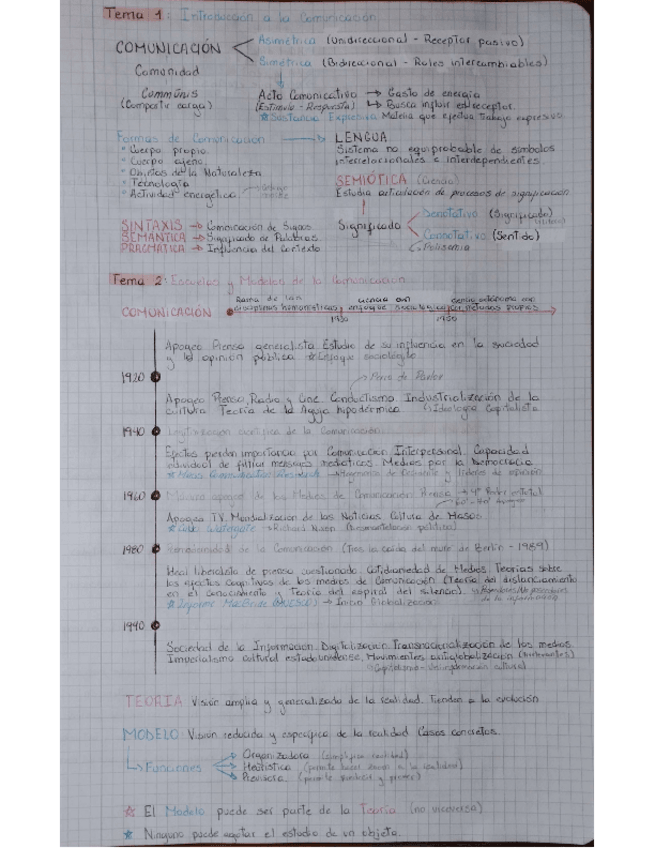 Tema 1: Introducción a la Comunicación
COMUNICACIÓN
Asimétrica (Unidireccional - Receptor pasivo)
Simétrica (Bidireccional - Roles intercambiables)
Comunidad
Communis
(Compartir carga)
Acto Comunicativo → Gasto de energía
(Estímulo - Respuesta) ↳ Busca influir en receptor.
* Sustancia Expresiva Materia que efectúa trabajo expresivo.
Formas de Comunicación → LENGUA
Sistema no equiprobable de símbolos
interrelacionales e interdependientes
° Cuerpo propio
° Cuerpo ajeno
° Objetos de la Naturaleza
° Tecnología
° Actividad energética
SEMIÓTICA (Ciencia)
Estudia articulación de procesos de significación
Significado
Denotativo (Significado)
Connotativo (Sentido)
Polisemia
SINTAXIS → Combinación de Signos
SEMÁNTICA → Significado de Palabras
PRAGMÁTICA → Influencia del Contexto
Tema 2: Escuelas y Modelos de la Comunicación
COMUNICACIÓN
Rama de las
disciplinas humanísticas
ciencia con
enfoque sociológico
ciencia autónoma con
1930
1950
Apogeo Prensa generalista Estudio de su influencia en la sociedad
y la opinión pública * Enfoque sociológico
1920
Apogeo Prensa, Radio y Cine Conductismo Industrialización de la
cultura Teoría de la Aguja hipodérmica Ideología Capitalista
1940
Legitimación científica de la Comunicación
Efectos pierden importancia por Comunicación Interpersonal. Capacidad
individual de filtrar mensajes mediáticos. Medios por la Democracia
* Mass Communication Research → y líderes de opinión
1960
Máximo apogeo de los Medios de Comunicación Prensa → 4º Poder
Apogeo TV Mundialización de las Noticias Cultura de Masas
* Caso Watergate → Richard Nixon
1980
de la Comunicación (Tras la caída del muro de Berlín - 1989)
Ideal liberalista de prensa cuestionado. Cotidianeidad de Medios Teorías sobre
los efectos cognitivos de los medios de comunicación (Teoría del distanciamiento
en el conocimiento y Teoría del espiral del silencio).
* Informe MacBride (UNESCO) → Inicio Globalización
1990
Sociedad de la Información Digitalización Transnacionalización de los medios
Imperialismo cultural estadounidense, Movimientos antiglobalización
TEORÍA Visión amplia y generalizada de la realidad. Tienden a la evolución
MODELO Visión reducida y específica de la realidad Casos concretos.
Funciones
Organizadora (simplifica realidad)
Heurística
Previsora
☆ El Modelo puede ser parte de la Teoría (no viceversa)
★ Ninguno puede agotar el estudio de un objeto.